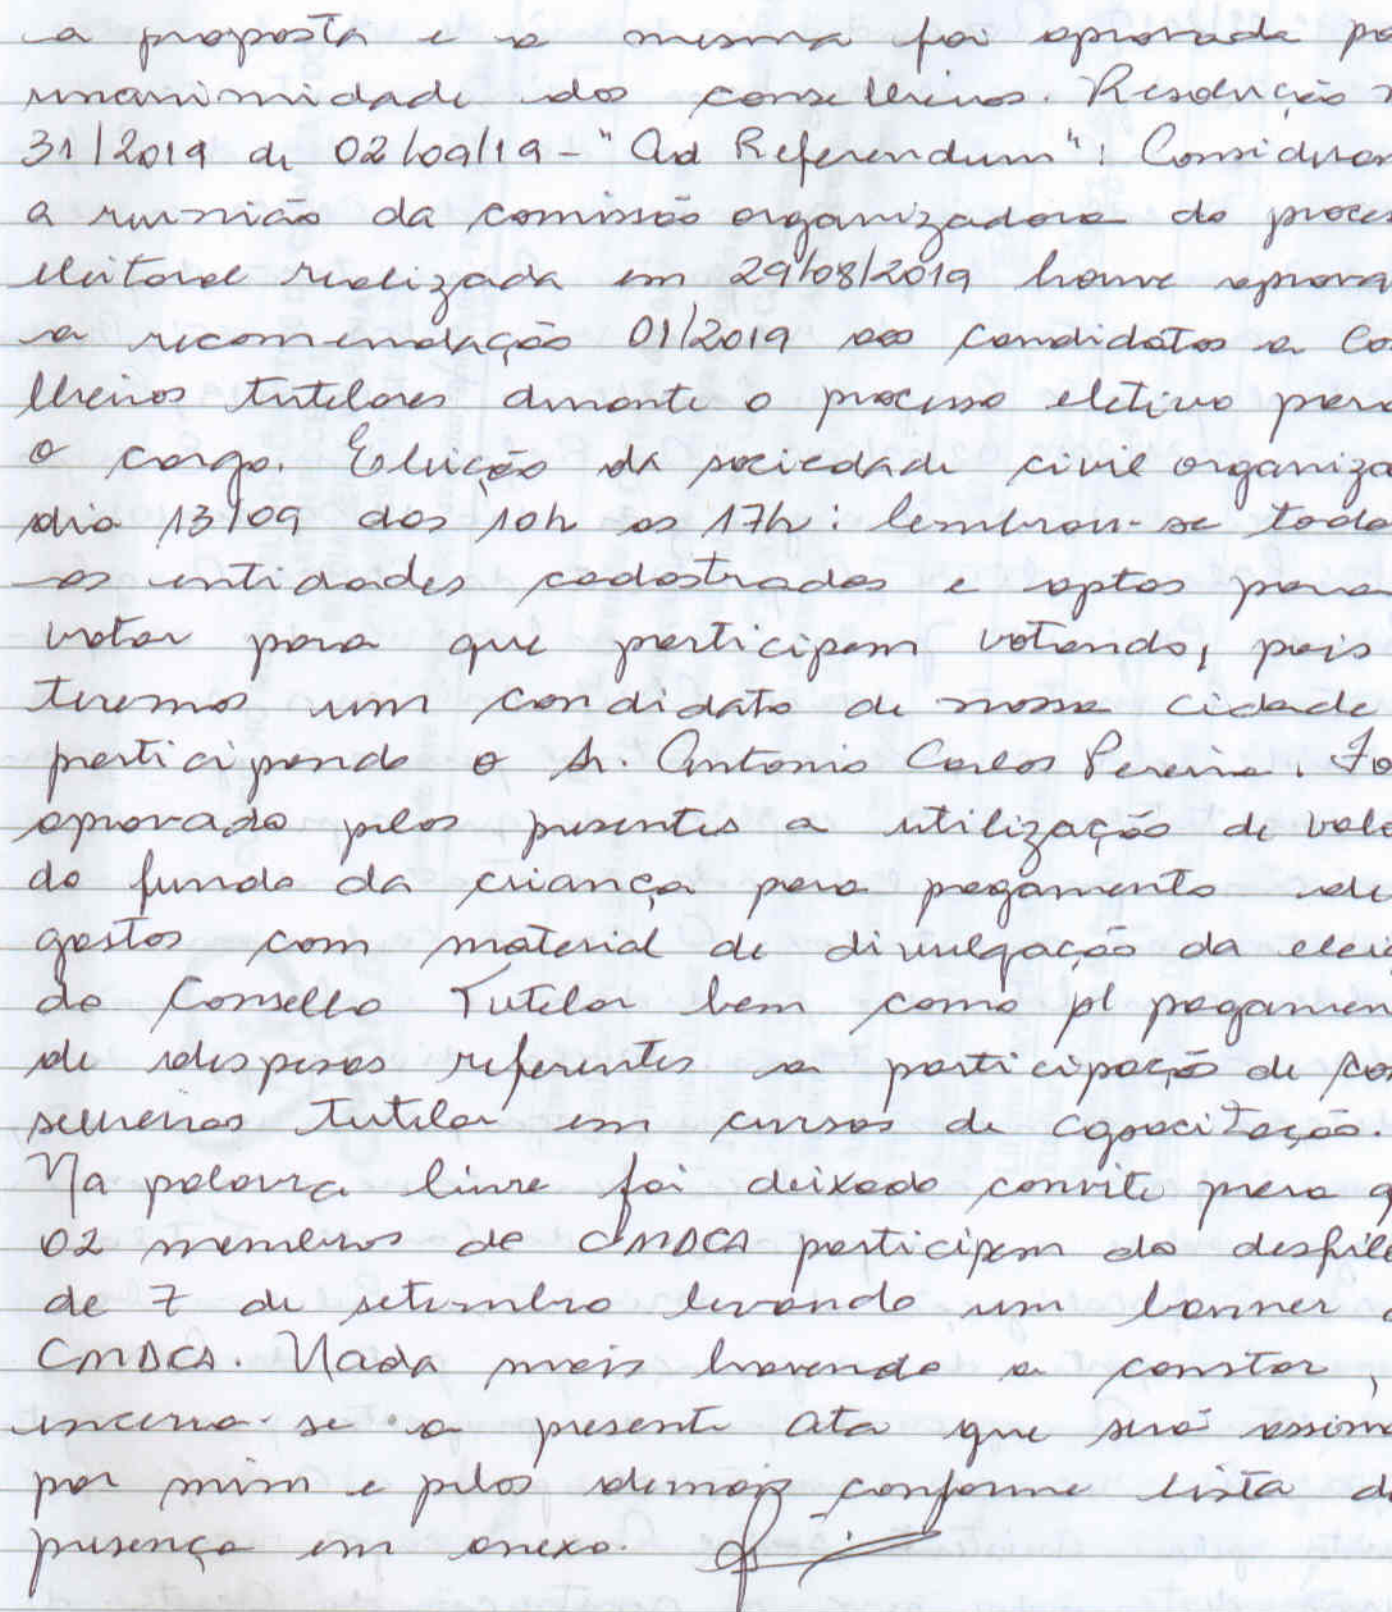 a proposta e a mesma foi aprovada po
unanimidade dos conselheiros. Resolução n
31/2019 de 02/09/19 - "Ad Referendum": Consideran
a reunião da comissão organizadora do proces
eleitoral realizada em 29/08/2019 houve aprova
a recomendação 01/2019 aos candidatos a Co
lheiros tutelares durante o processo eletivo para
o cargo. Eleição da sociedade civil organiza
dia 13/09 das 10h as 17h: lembrou-se toda
as entidades cadastradas e aptas para
votar para que participem votando, pois
teremos um candidato de nossa cidade
participando o Sr. Antonio Carlos Pereira. Fo
aprovado pelos presentes a utilização de valo
do fundo da criança para pagamento de
gastos com material de divulgação da eleiç
do Conselho Tutelar bem como p/ pagamen
de despesas referentes a participação de co
selheiros tutelar em cursos de capacitação.
Na palavra livre foi deixado convite para q
02 membros do CMDCA participem do desfile
de 7 de setembro levando um banner d
CMDCA. Nada mais havendo a constar,
encerra-se a presente ata que será assina
por mim e pelos demais conforme lista de
presença em anexo.